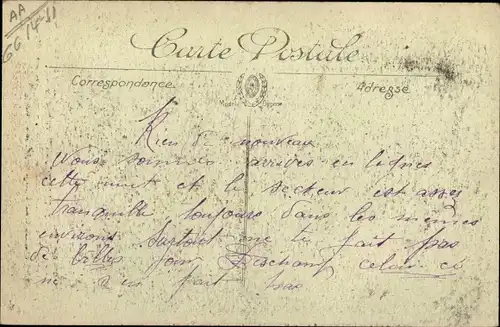 AA
Carte Postale
Correspondence
Adresse
Rien de nouveau
Nous sommes arrivés en lignes
cette nuit et le secteur est assez
tranquille toujours dans les mêmes
environs surtout ne te fait pas
de billes pour celui ci
ne s'en fait pas